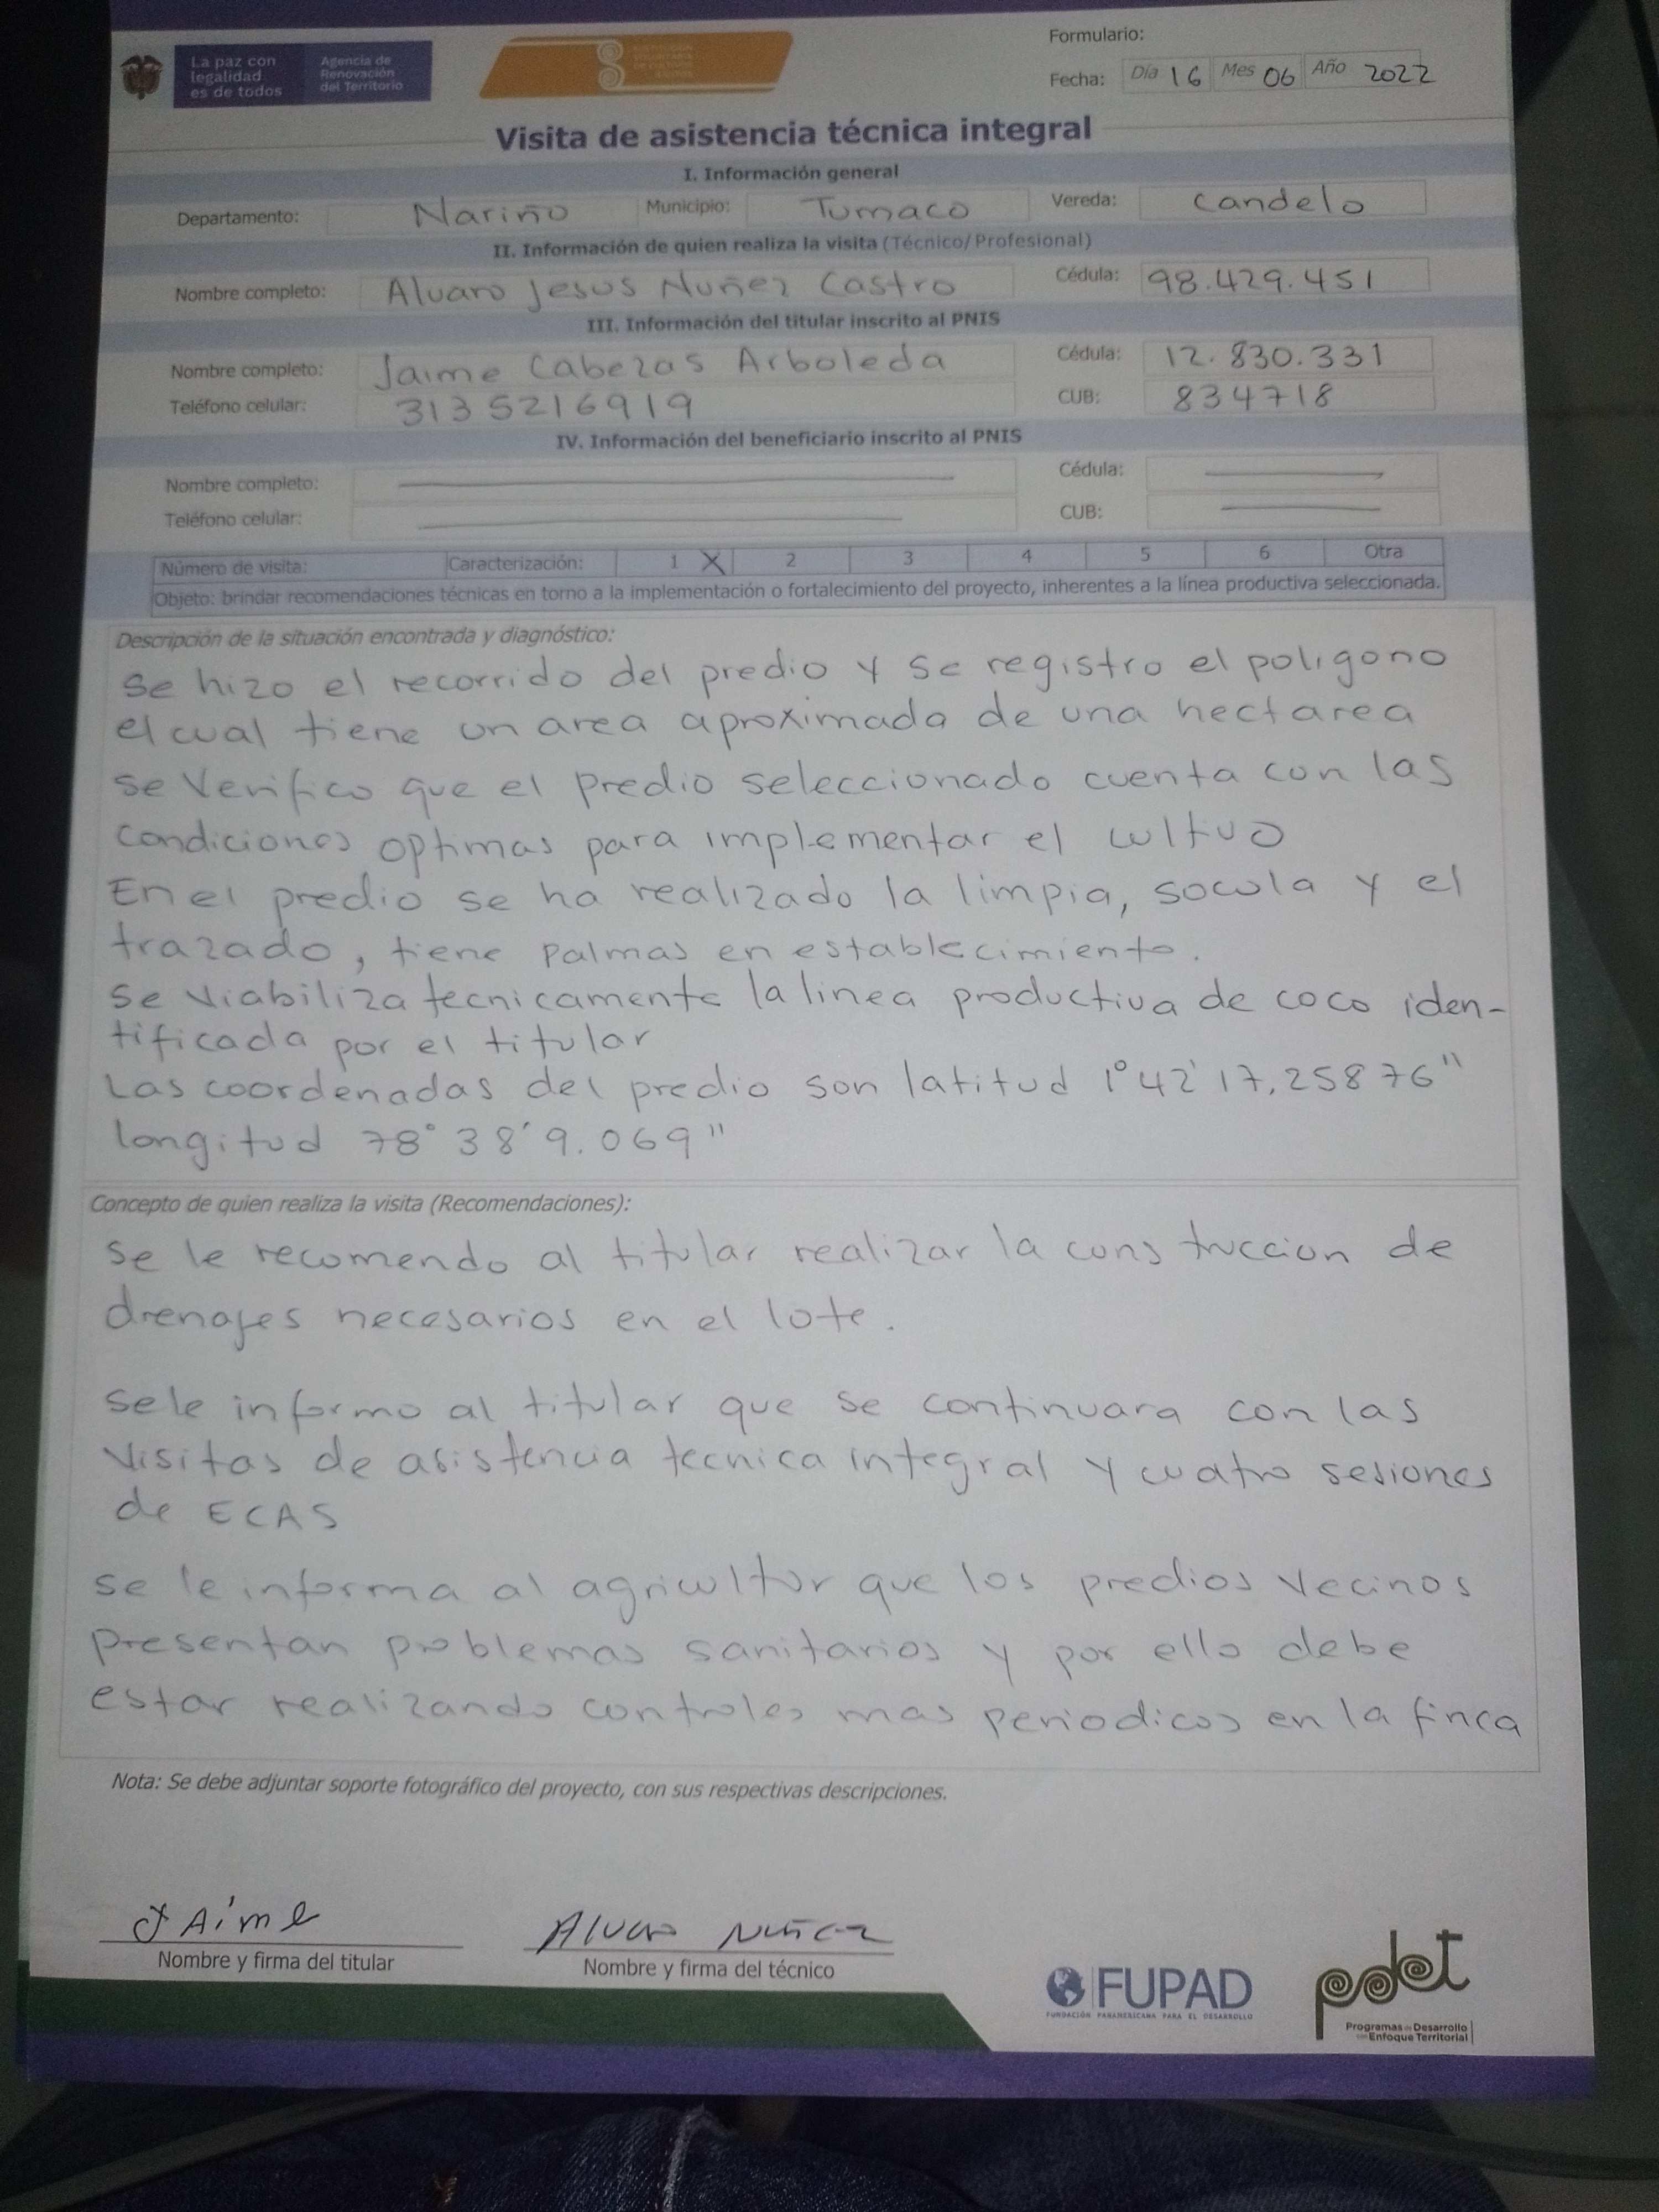 La paz con
legalidad
es de todos
Agencia de
Renovación
del Territorio
Formulario:
Fecha: Día 16 Mes 06 Año 2022
Visita de asistencia técnica integral
I. Información general
Departamento: Nariño Municipio: Tumaco Vereda: Candelo
II. Información de quien realiza la visita (Técnico/Profesional)
Nombre completo: Alvaro Jesus Nuñez Castro Cédula: 98.429.451
III. Información del titular inscrito al PNIS
Nombre completo: Jaime Cabezas Arboleda Cédula: 12.830.331
Teléfono celular: 3135216919 CUB: 834718
IV. Información del beneficiario inscrito al PNIS
Nombre completo: Cédula:
Teléfono celular: CUB:
Número de visita: Caracterización: 1 X 2 3 4 5 6 Otra
Objeto: brindar recomendaciones técnicas en torno a la implementación o fortalecimiento del proyecto, inherentes a la línea productiva seleccionada.
Descripción de la situación encontrada y diagnóstico:
Se hizo el recorrido del predio y se registro el poligono
el cual tiene un area aproximada de una hectarea
Se Verifico que el predio seleccionado cuenta con las
condiciones optimas para implementar el cultivo
En el predio se ha realizado la limpia, socula y el
trazado, tiene palmas en establecimiento.
Se viabiliza tecnicamente la linea productiva de coco iden-
tificada por el titular
Las coordenadas del predio son latitud 1°42'17,25876"
longitud 78°38'9.069"
Concepto de quien realiza la visita (Recomendaciones):
Se le recomendo al titular realizar la construccion de
drenajes necesarios en el lote.
Se le informo al titular que se continuara con las
Visitas de asistencia tecnica integral y cuatro sesiones
de ECAS
Se le informa al agricultor que los predios Vecinos
Presentan problemas sanitarios y por ello debe
estar realizando controles mas periodicos en la finca
Nota: Se debe adjuntar soporte fotográfico del proyecto, con sus respectivas descripciones.
JAime Alvaro Nuñez
Nombre y firma del titular Nombre y firma del técnico
FUPAD
FUNDACIÓN PANAMERICANA PARA EL DESARROLLO
pdet
Programas de Desarrollo
con Enfoque Territorial